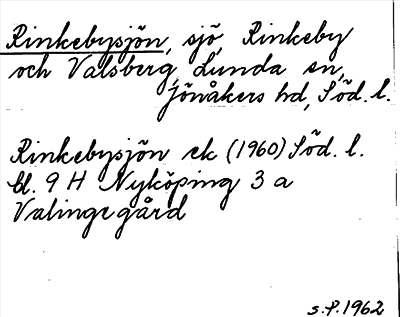 Rinkebysjön, sjö, Rinkeby
och Valsberg, Lunda sn,
Jönåkers hd, Söd. l.
Rinkebysjön ek (1960) Söd. l.
bl. 9 H Nyköping 3 a
Valinge gård
s.f. 1962